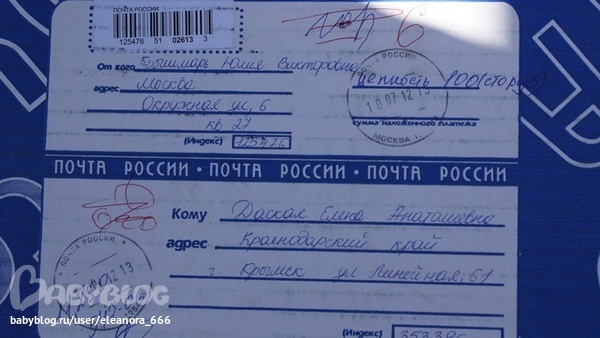 ПОЧТА РОССИИ
125476 51 02613 3
От кого Юлия Викторовна
ценность 100 (сто руб)
адрес Москва
Окружная ул, 6
кв 27
(Индекс) 125476
ПОЧТА РОССИИ
10 07 12 13
МОСКВА
сумма наложенного платежа
ПОЧТА РОССИИ • ПОЧТА РОССИИ • ПОЧТА РОССИИ
Кому Даскал Елена Анатольевна
адрес Краснодарский край
г Крымск ул. Линейная, 61
(Индекс)
ПОЧТА РОССИИ
BABYBLOG
babyblog.ru/user/eleanora_666